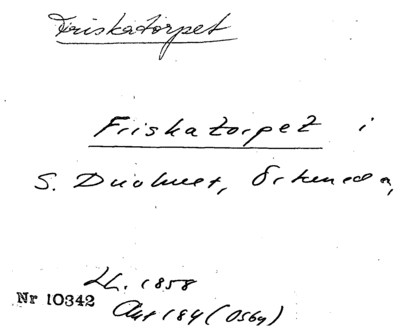 Friskatorpet
Friskatorpet i
S. Duvhult, Örkened a,
Lh. 1858
Nr 10342
Akt 184 (Osby)